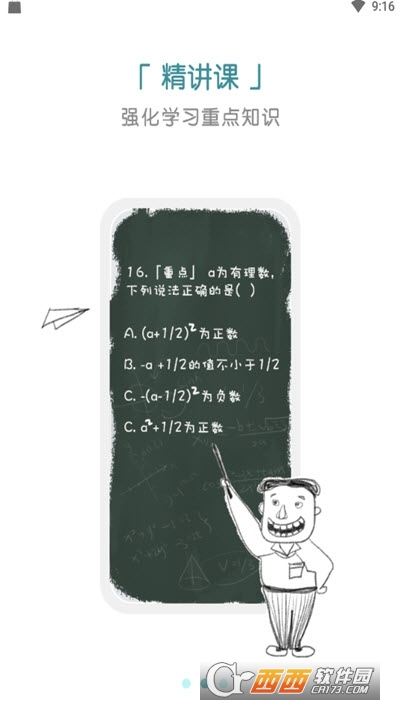 9:16
「 精讲课 」
强化学习重点知识
16.「重点」 a为有理数，
下列说法正确的是( )
A. (a+1/2)²为正数
B. -a +1/2的值不小于1/2
C. -(a-1/2)²为负数
C. a²+1/2为正数
V=1/3
Cr 西西软件园
CR173.com